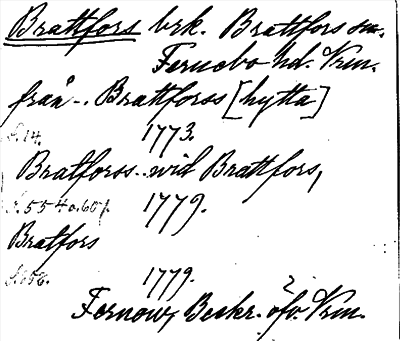 Brattfors brk. Brattfors sn.
Fernebo hd. Vrm.
från -. Brattforss [hytta]
S. 14. 1773.
Bratforss .. wid Brattfors,
S. 554 o. 607. 1779.
Bratfors
1779.
Fernow, Beskr. öfv. Vrm.